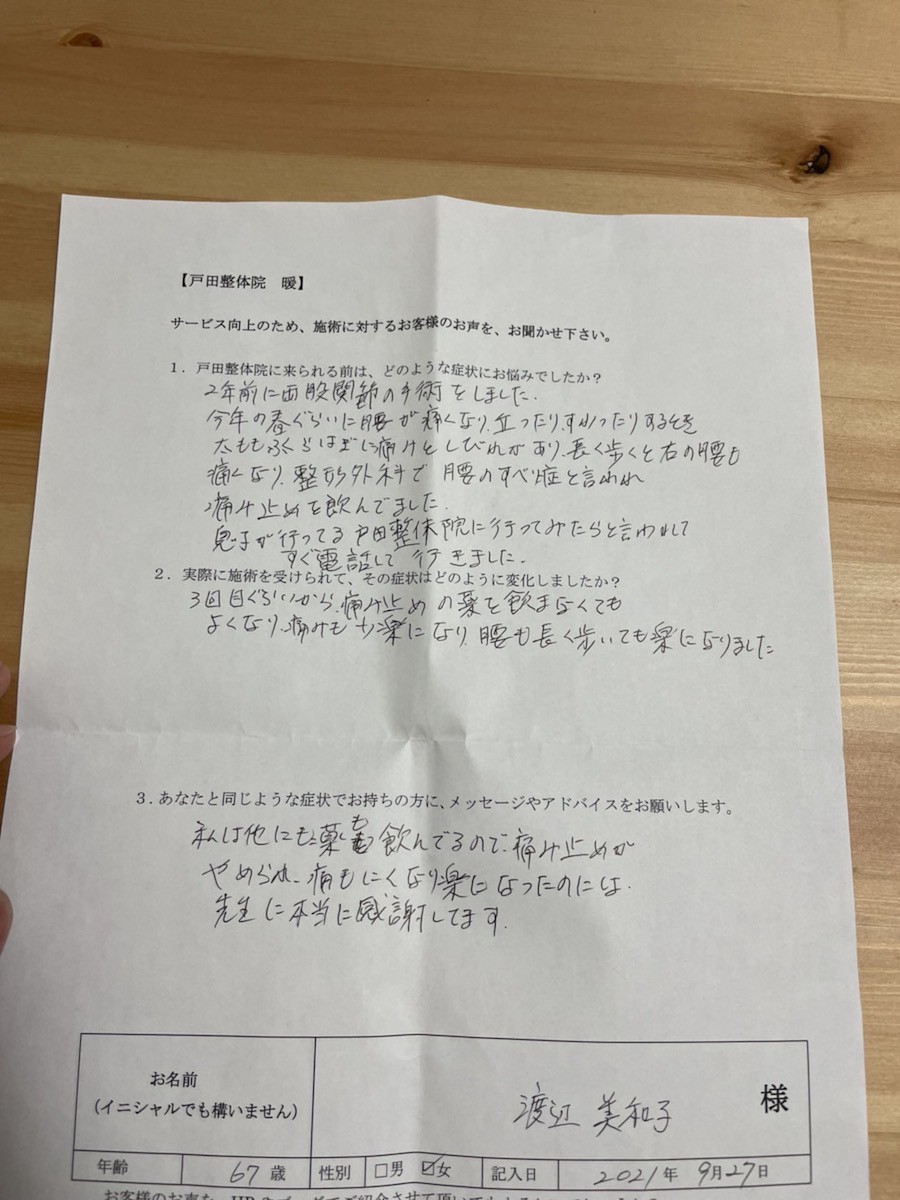 【戸田整体院 暖】
サービス向上のため、施術に対するお客様のお声を、お聞かせ下さい。
1．戸田整体院に来られる前は、どのような症状にお悩みでしたか？
2年前に両股関節の手術をしました.
今年の春ぐらいに腰が痛くなり,立ったり,すわったりするときを
太ももふくらはぎに痛けとしびれがあり,長く歩くと右の腰も
痛くなり,整形外科で 腰のすべり症と言われ
痛み止めを飲んでました.
息子が行ってる戸田整体院に行ってみたらと言われて
すぐ電話して 行きました.
2．実際に施術を受けられて、その症状はどのように変化しましたか？
3回目ぐらいから,痛み止めの薬を飲まなくても
よくなり,痛みも少楽になり,腰も長く歩いても楽になりました
3．あなたと同じような症状でお持ちの方に、メッセージやアドバイスをお願いします。
私は他にも薬も飲んでるので,痛み止めが
やめられ,痛もにくなり楽になったのには.
先生に本当に感謝してます.
お名前
（イニシャルでも構いません）
渡辺 美和子 様
年齢 67歳 性別 □男 ☑女 記入日 2021年 9月27日